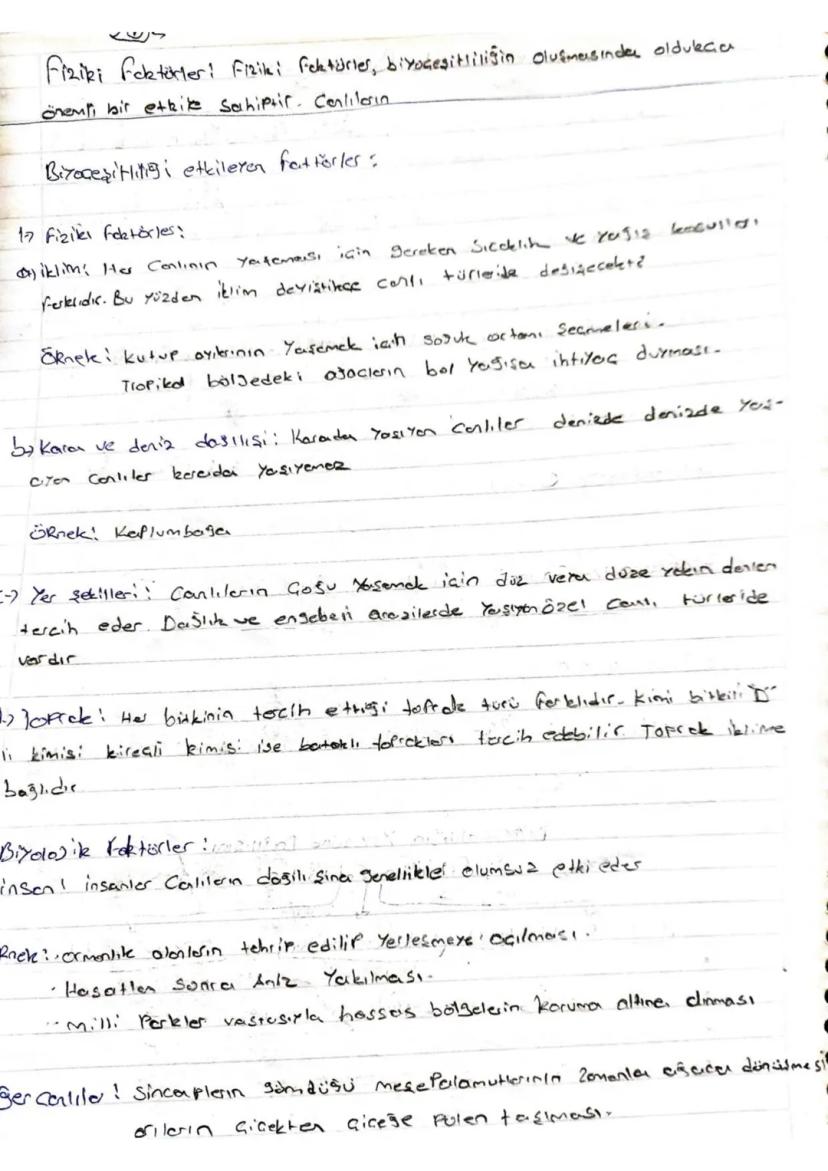 Fiziki Faktörler: Fiziki Faktörler, biyoçeşitliliğin oluşmasında oldukca
önemli bir etkiye sahiptir. Canlıların
Biyoçeşitliliği etkileyen faktörler:
1-) Fiziki faktörler:
a) iklim: Her Canlının yaşaması için gereken Sıcaklık ve yağış koşulları
farklıdır. Bu yüzden iklim değiştikçe canlı türleride değişecektir
ÖRnek: Kutup ayılarının Yaşamak için soğuk ortamı Seçmeleri.
Tropikal bölgedeki ağaçların bol yağışa ihtiyaç duyması.
b-) Kara ve deniz dağılışı: Karada Yaşıyan canlılar denizde denizde yaş-
ayan canlılar karada yaşıyamaz
ÖRnek: Kaplumbağa
c-) Yer şekilleri: Canlıların Çoğu Yaşamak için düz veya düze yakın
tercih eder. Dağlık ve engebeli arazilerde Yaşıyan özel canlı türleride
vardır
Toprak: Her bitkinin tercih ettiği toprak türü farklıdır. Kimi
kimisi kireçli kimisi ise bataklı toprakları tercih edebilir. Toprak iklime
bağlıdır
Biyolojik Faktörler:
insan: insanlar Calıların dağılışına genellikle olumsuz etki eder
Rnek: ormanlık alanların tahrip edilip Yerleşmeye açılması.
· Hasattan Sonra Anız Yakılması.
· Milli Parklar vasıtasıyla hassas bölgelerin Koruma altına alınması
ğer canlılar: Sincapların gömdüğü meşe Palamutlarının Zamanla ağaca dönüşmesi
arıların Çiçekten çiçeğe Polen taşıması.